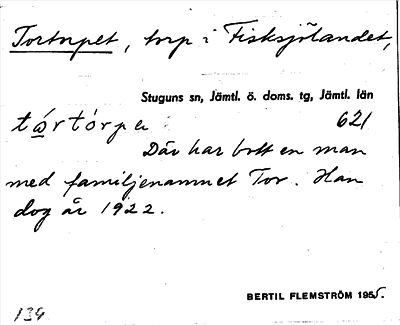 Tortorpet, torp i Fisksjölandet,
Stuguns sn, Jämtl. ö. doms. tg, Jämtl. län
621
Där har bott en man
med familjenamnet Tor. Han
dog år 1922.
BERTIL FLEMSTRÖM 1955.
139